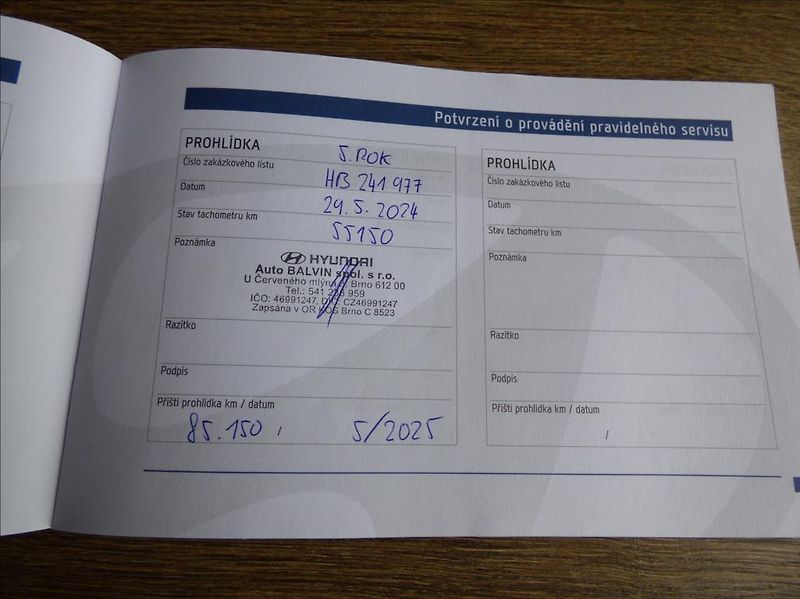 Potvrzení o provádění pravidelného servisu
PROHLÍDKA 5. ROK
Číslo zakázkového listu HB 241 977
Datum 29. 5. 2024
Stav tachometru km 55150
Poznámka
HYUNDAI
Auto BALVIN spol. s r.o.
U Červeného mlýna Brno 612 00
Tel.: 541 959
IČO: 46991247, DIČ: CZ46991247
Zapsána v OR KOS Brno C 8523
Razítko
Podpis
Příští prohlídka km / datum
85.150 / 5/2025
PROHLÍDKA
Číslo zakázkového listu
Datum
Stav tachometru km
Poznámka
Razítko
Podpis
Příští prohlídka km / datum
/